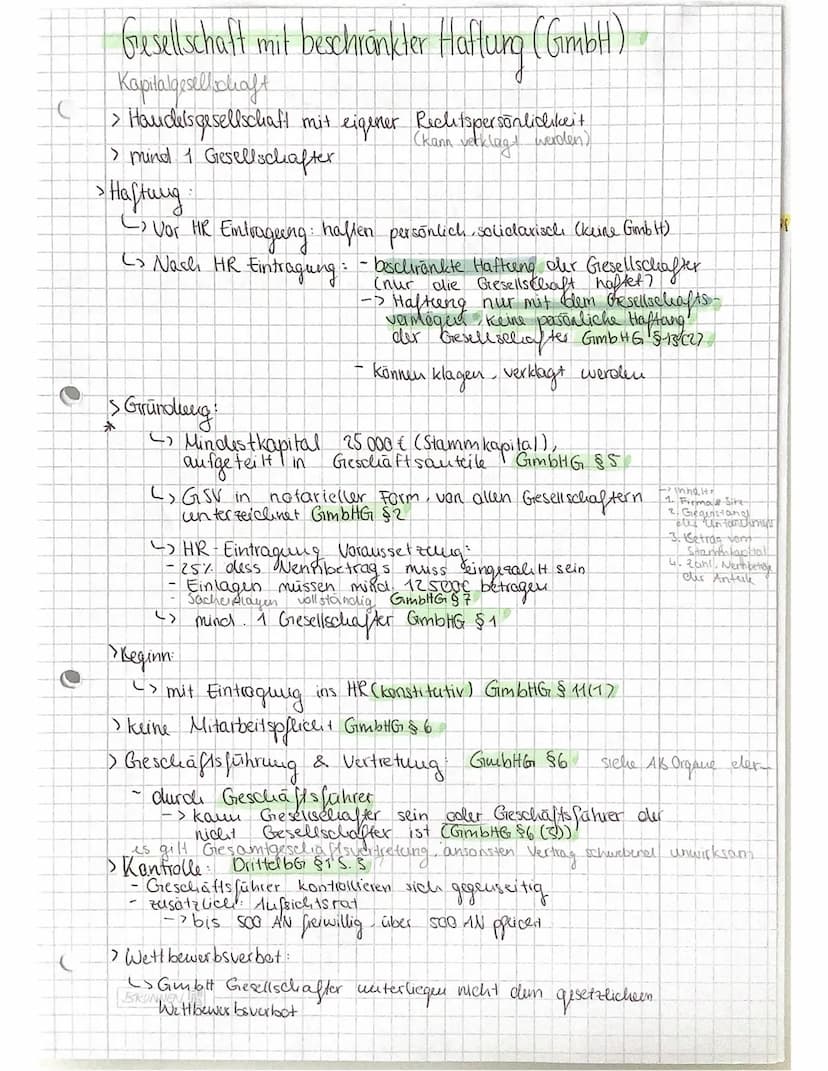 Gesellschaft mit beschränkter Haftung (GmbH)
Kapitalgesellschaft
> Handelsgesellschaft mit eigener Rechtspersönlichkeit
(kann verklagt werden)
> mind 1 Gesellschafter
> Haftung:
↳ Vor HR Eintragung: haften persönlich, solidarisch (keine GmbH)
↳ Nach HR Eintragung: - beschränkte Haftung der Gesellschafter
(nur die Gesellschaft haftet)
-> Haftung nur mit dem Gesellschafts-
vermögen, keine persönliche Haftung
der Gesellschafter GmbHG §13(2)
- können klagen, verklagt werden
> Gründung:
*
↳ Mindestkapital 25 000 € (Stammkapital),
aufgeteilt in Geschäftsanteile GmbHG §5
↳ GSV in notarieller Form, von allen Gesellschaftern
unterzeichnet GmbHG §2
-> Inhalt:
1. Firma & Sitz
2. Gegenstand
des Unternehmens
3. Betrag vom
Stammkapital
4. Zahl, Nennbeträge
der Anteile
↳ HR-Eintragung Voraussetzung:
- 25% dess Nennbetrags muss eingezahlt sein
- Einlagen müssen mind. 12500€ betragen
- Sacheinlagen vollständig GmbHG §7
↳ mind. 1 Gesellschafter GmbHG §1
> Beginn:
↳ mit Eintragung ins HR (konstitutiv) GmbHG §11(1)
> keine Mitarbeitspflicht GmbHG §6
> Geschäftsführung & Vertretung: GmbHG §6 siehe AB Organe der
- durch Geschäftsführer
-> kann Gesellschafter sein oder Geschäftsführer der
nicht Gesellschafter ist (GmbHG §6(3))
es gilt Gesamtgeschäftsvertretung, ansonsten Vertrag schwebend unwirksam
> Kontrolle: DrittelbG §1 S. 3
- Geschäftsführer kontrollieren sich gegenseitig
- zusätzlich: Aufsichtsrat
-> bis 500 AN freiwillig, über 500 AN pflicht
> Wettbewerbsverbot:
↳ GmbH Gesellschafter unterliegen nicht dem gesetzlichem
BRUNNEN
Wettbewerbsverbot